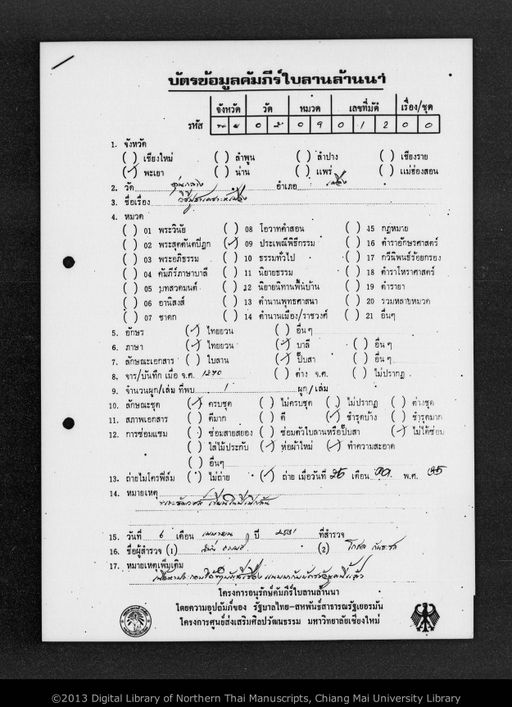 บัตรข้อมูลคัมภีร์ใบลานล้านนา
จังหวัด วัด หมวด เลขที่มัด เรื่อง/ชุด
รหัส 0 2 0 9 0 1 2 0 0
1. จังหวัด
( ) เชียงใหม่ ( ) ลำพูน ( ) ลำปาง ( ) เชียงราย
(✓) พะเยา ( ) น่าน ( ) แพร่ ( ) แม่ฮ่องสอน
2. วัด อำเภอ เมือง
3. ชื่อเรื่อง
4. หมวด
( ) 01 พระวินัย ( ) 08 โอวาทคำสอน ( ) 45 กฎหมาย
( ) 02 พระสุตตันตปิฎก (✓) 09 ประเพณีพิธีกรรม ( ) 16 ตำราอักษรศาสตร์
( ) 03 พระอภิธรรม ( ) 10 ธรรมทั่วไป ( ) 17 กวีนิพนธ์ร้อยกรอง
( ) 04 คัมภีร์ภาษาบาลี ( ) 11 นิยายธรรม ( ) 18 ตำราโหราศาสตร์
( ) 05 บทสวดมนต์ ( ) 12 นิยายนิทานพื้นบ้าน ( ) 19 ตำรายา
( ) 06 อานิสงส์ ( ) 13 ตำนานพุทธศาสนา ( ) 20 รวมหลายหมวด
( ) 07 ชาดก ( ) 14 ตำนานเมือง/ราชวงศ์ ( ) 21 อื่นๆ
5. อักษร (✓) ไทยยวน ( ) อื่นๆ
6. ภาษา (✓) ไทยยวน (✓) บาลี ( ) อื่นๆ
7. ลักษณะเอกสาร ( ) ใบลาน (✓) ปั๊บสา ( ) อื่นๆ
8. จาร/บันทึก เมื่อ จ.ศ. 1290 ( ) ต่าง จ.ศ. ( ) ไม่ปรากฏ
9. จำนวนผูก/เล่ม ที่พบ 1 ผูก/เล่ม
10. ลักษณะชุด (✓) ครบชุด ( ) ไม่ครบชุด ( ) ไม่ปรากฏ ( ) ต่างชุด
11. สภาพเอกสาร ( ) ดีมาก ( ) ดี (✓) ชำรุดบ้าง ( ) ชำรุดมาก
12. การซ่อมแซม ( ) ซ่อมสายสยอง ( ) ซ่อมตัวใบลานหรือปั๊บสา (✓) ไม่ได้ซ่อม
( ) ใส่ไม้ประกับ (✓) ห่อผ้าใหม่ (✓) ทำความสะอาด
( ) อื่นๆ
13. ถ่ายไมโครฟิล์ม ( ) ไม่ถ่าย (✓) ถ่าย เมื่อวันที่ 25 เดือน พ.ศ. 35
14. หมายเหตุ
15. วันที่ 6 เดือน เมษายน ปี 2531 ที่สำรวจ
16. ชื่อผู้สำรวจ (1) (2)
17. หมายเหตุเพิ่มเติม
โครงการอนุรักษ์คัมภีร์ใบลานล้านนา
โดยความอุปถัมภ์ของ รัฐบาลไทย-สหพันธ์สาธารณรัฐเยอรมัน
โครงการศูนย์ส่งเสริมศิลปวัฒนธรรม มหาวิทยาลัยเชียงใหม่
©2013 Digital Library of Northern Thai Manuscripts, Chiang Mai University Library